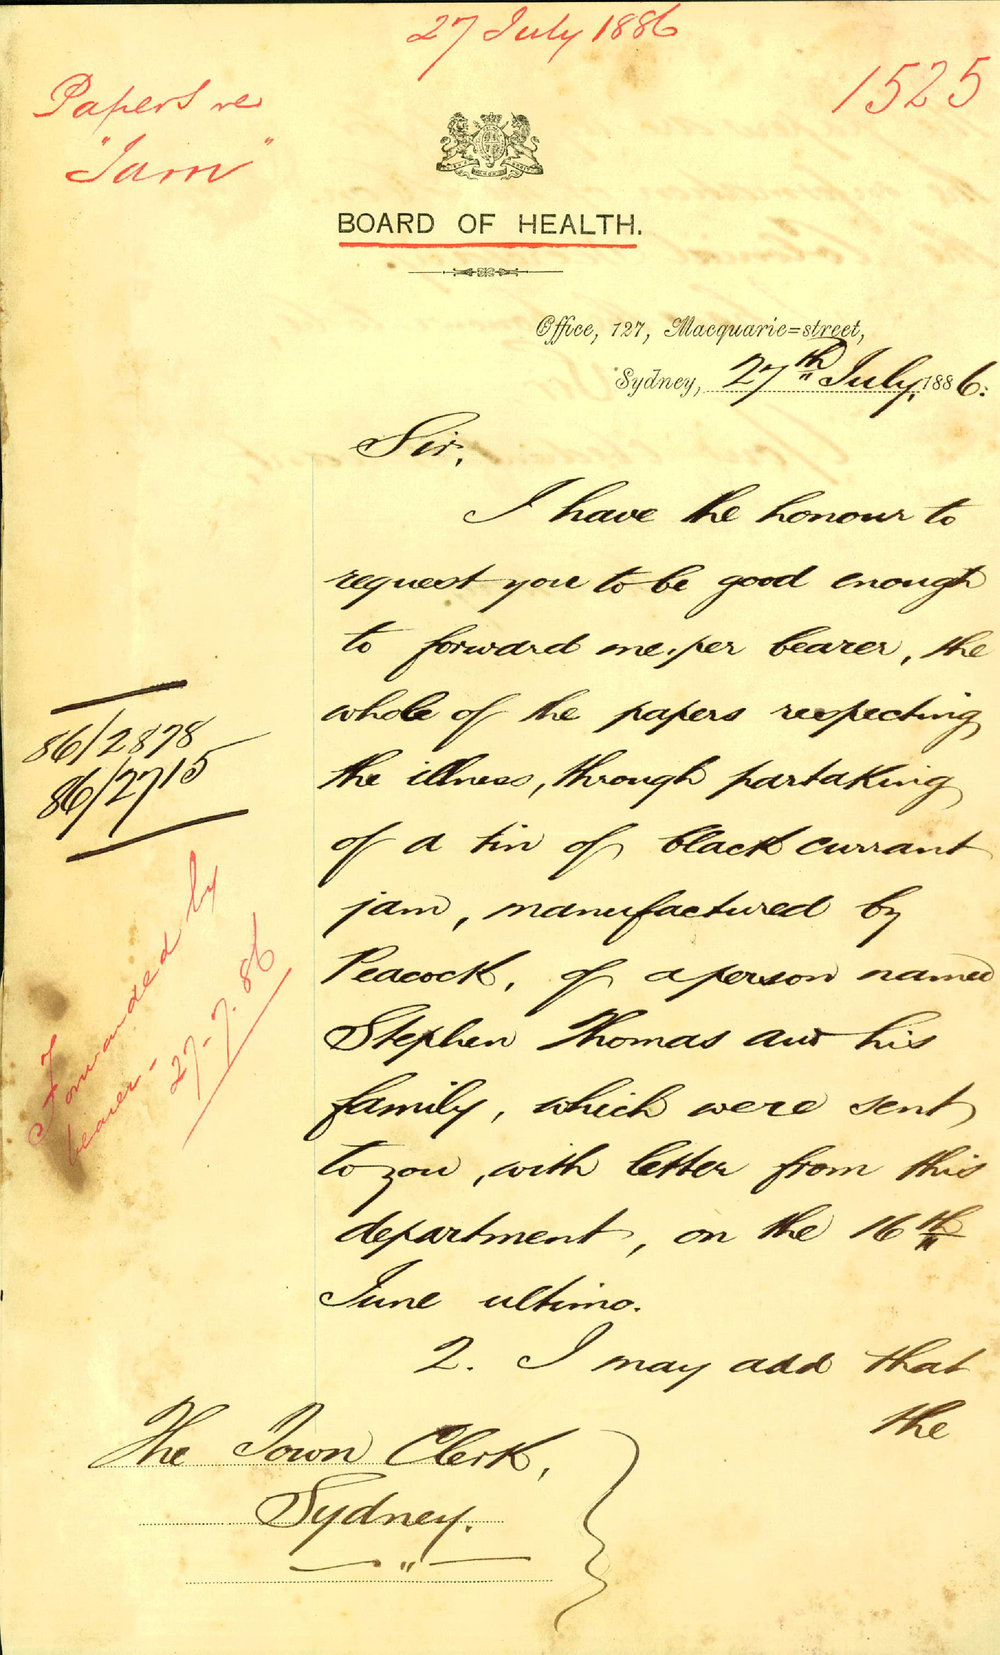 27 July 1886
1525
Papers re
"Jam"
BOARD OF HEALTH.
Office, 127, Macquarie=street,
Sydney, 27th July, 1886:
Sir,
I have the honour to
request you to be good enough
to forward me, per bearer, the
whole of the papers respecting
the illness, through partaking
of a tin of black currant
jam, manufactured by
Peacock, of a person named
Stephen Thomas and his
family, which were sent
to you, with letter from this
department, on the 16th
June ultimo.
2. I may add that
the
The Town Clerk,
Sydney.
"
86/2878
86/2715
Forwarded by
bearer -
27-7.86